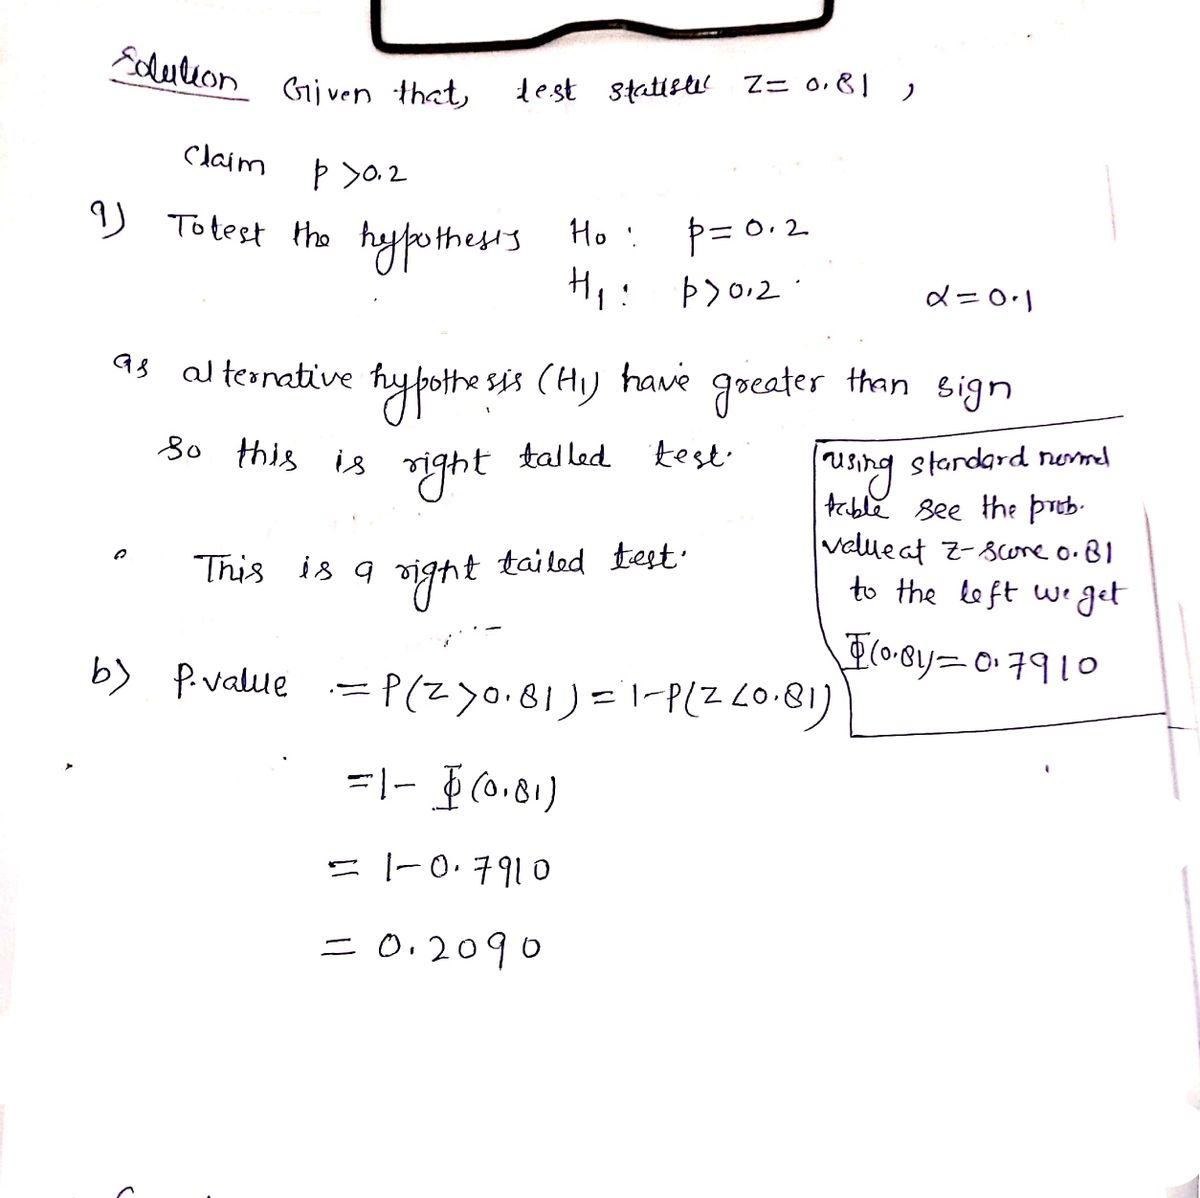 Solution Given that, test statistic Z = 0.81 ,
Claim p > 0.2
a) To test the hypothesis H₀ : p = 0.2
H₁ : p > 0.2 . α = 0.1
as alternative hypothesis (H₁) have greater than sign
so this is right tailed test.
This is a right tailed test.
using standard normal
table see the prob.
value at Z-score 0.81
to the left we get
Φ(0.81) = 0.7910
b) P-value = P(Z > 0.81) = 1-P(Z < 0.81)
= 1 - Φ(0.81)
= 1 - 0.7910
= 0.2090